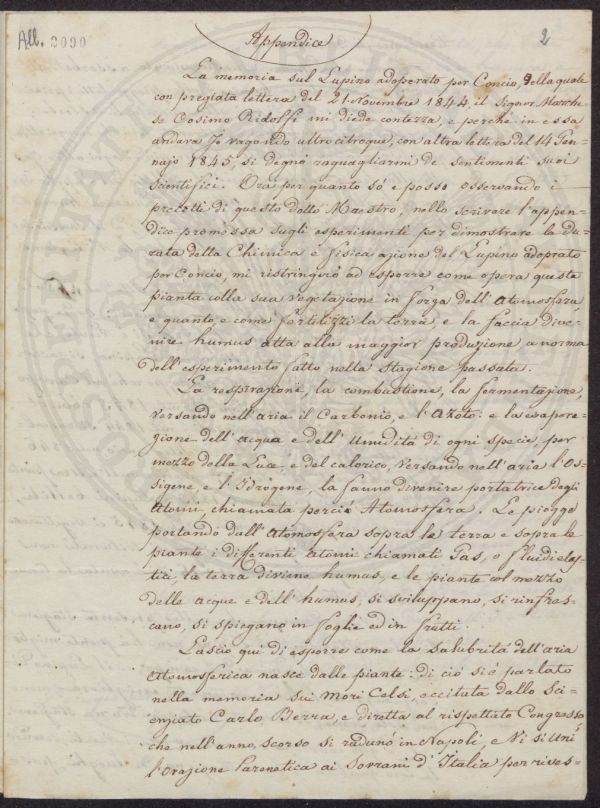 All. 2090
2
Appendice
La memoria sul Lupino adoperato per Concio, della quale
con pregiata lettera del 21 Novembre 1844 il Signor Marche-
se Cosimo Ridolfi mi diede contezza, e perchè in essa
andava Io vagando ultro citroque, con altra lettera del 14 Gen-
najo 1845, si degnò raguagliarmi de' sentimenti suoi
scientifici. Ora per quanto só e posso osservando i
precetti di questo dotto Maestro, nello scrivere l'appen-
dice promossa sugli esperimenti per dimostrare la du-
rata della Chimica e fisica azione del Lupino adoprato
per Concio, mi ristringerò ad esporre come opera questa
pianta colla sua vegetazione in forza dell'Atomosfera
e quanto e come fertilizzi la terra, e la faccia dive-
nire humus atta alla maggior produzione a norma
dell'esperimento fatto nella stagione passata.
La respirazione, la combustione, la fermentazione,
versando nell'aria il Carbonio, e l'Azoto: e la evapore-
gione dell'acqua e dell'Umedità di ogni specie, per
mezzo della Luce, e del calorico, versando nell'aria l'Os-
sigene, e l'Idrogene, la fanno divenire portatrice degli
Atomi, chiamata perciò Atomosfera. Le piogge
portando dall'Atomosfera sopra la terra e sopra le
piante i differenti Atomi chiamati Gas, o fluidi elas-
tici, la terra diviene humus, e le piante col mezzo
delle acque e dell'humus, si sviluppano, si rinfres-
cano, si spiegano in foglie ed in frutti.
Lascio qui di esporre come la salubrità dell'aria
Atomosferica nasce dalle piante: di ciò si è parlato
nella memoria sui Mori Celsi, eccitata dallo Sci-
enziato Carlo Berra, e diretta al rispettato Congresso
che nell'anno, scorso si radunò in Napoli, e Vi si unì
l'Orazione Parenetica ai Sovrani d'Italia per rives-